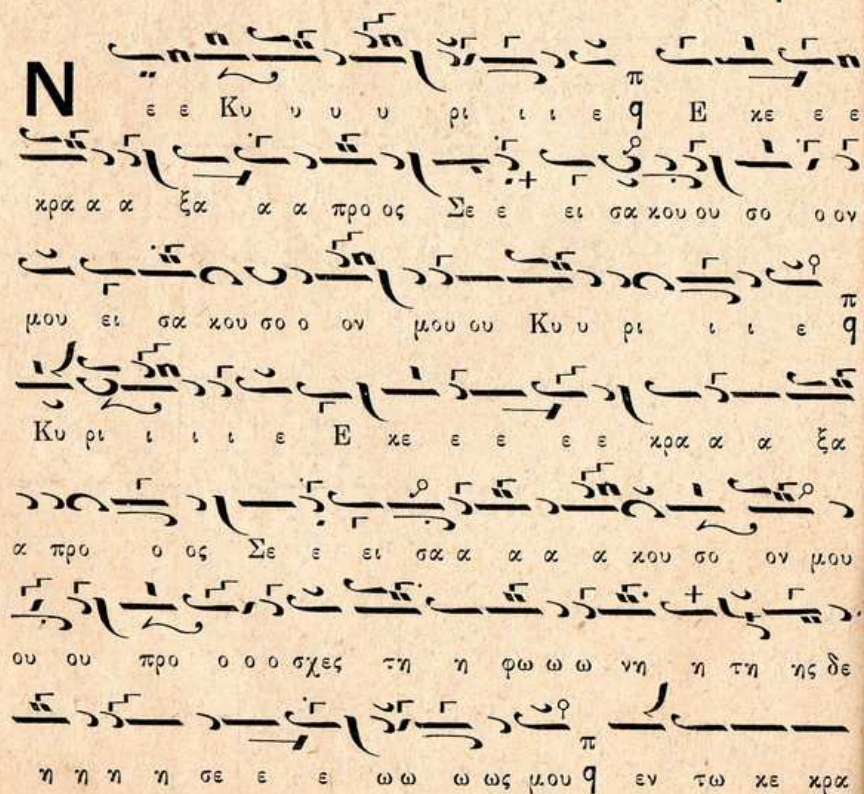 Ν ε ε Κυ υ υ υ ρι ι ι ε π q Ε κε ε ε
κρα α α ξα α α προ ος Σε ε ει σα κου ου σο ο ον
μου ει σα κου σο ο ον μου ου Κυ υ ρι ι ι ε π q
Κυ ρι ι ι ι ε Ε κε ε ε ε ε κρα α α ξα
α προ ο ος Σε ε ει σα α α α α κου σο ον μου
ου ου προ ο ο ο σχες τη η φω ω ω νη η τη ης δε
η η η η σε ε ε ω ω ω ως μου π q εν τω κε κρα